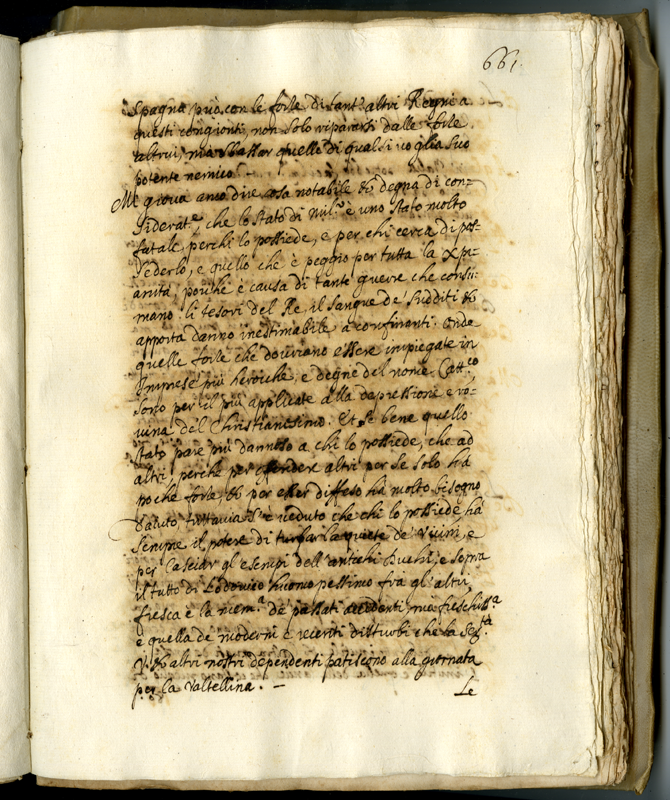 661.
Spagna può con le forze di tant'altri Regni a
questi congionti, non solo ripararsi dalle forze
altrui, ma sbassar quelle di qualsivoglia suo
potente nemico.
Mi giova anco dire cosa notabile & degna di con-
siderat.e, che lo stato di Mil.o è uno stato molto
fatale, perchi lo possiede, e per chi cerca di pos-
sederlo, e quello che è peggio per tutta la Xpi-
anità, poiche è causa di tante guerre che consu-
mano li tesori del Re il sangue de' sudditi &
apporta danno inestimabile a confinanti. Onde
quelle forze che dovriano essere impiegate in
Imprese più heroiche, e degne del nome Catt.co
sono per il più applicate alla depressione e ro-
vina del Christianesimo. Et se bene quello
stato pare più dannoso a chi lo possiede, che ad
altri, perche per offender altri per se solo ha
poche forze, & per esser diffeso ha molto bisogno
d'aiuto, tuttavia s'è veduto che chi lo possiede ha
sempre il potere di turbar la quiete de' vicini, e
per lasciar gl'esempi dell'antichi Duchi, e sopra
il tutto di Lodovico huomo pessimo frà gl'altri,
fresca è la mem.a de' passati accidenti, ma freschiss.a
è quella de moderni e recenti disturbi che la Ser.tà
V. & altri nostri dependenti patiscono alla giornata
per la Valtellina. -
Le